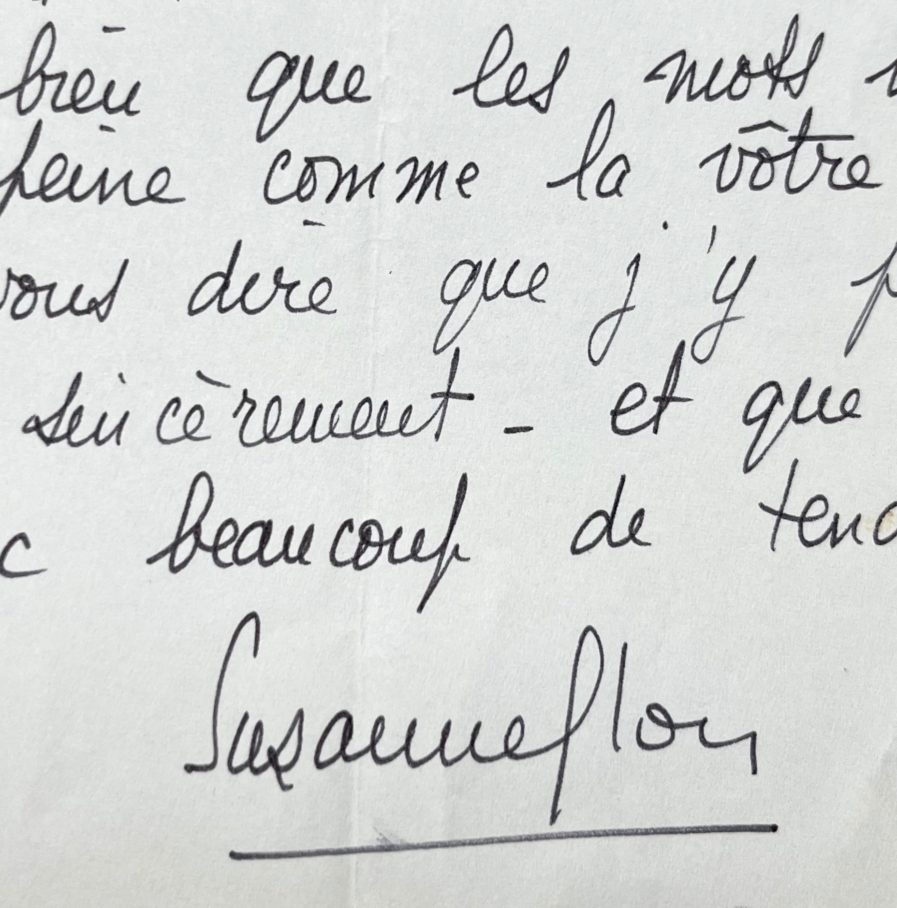 bien que les mots
peine comme la vôtre
vous dire que j'y
sincèrement - et que
beaucoup de
Suzanne flon